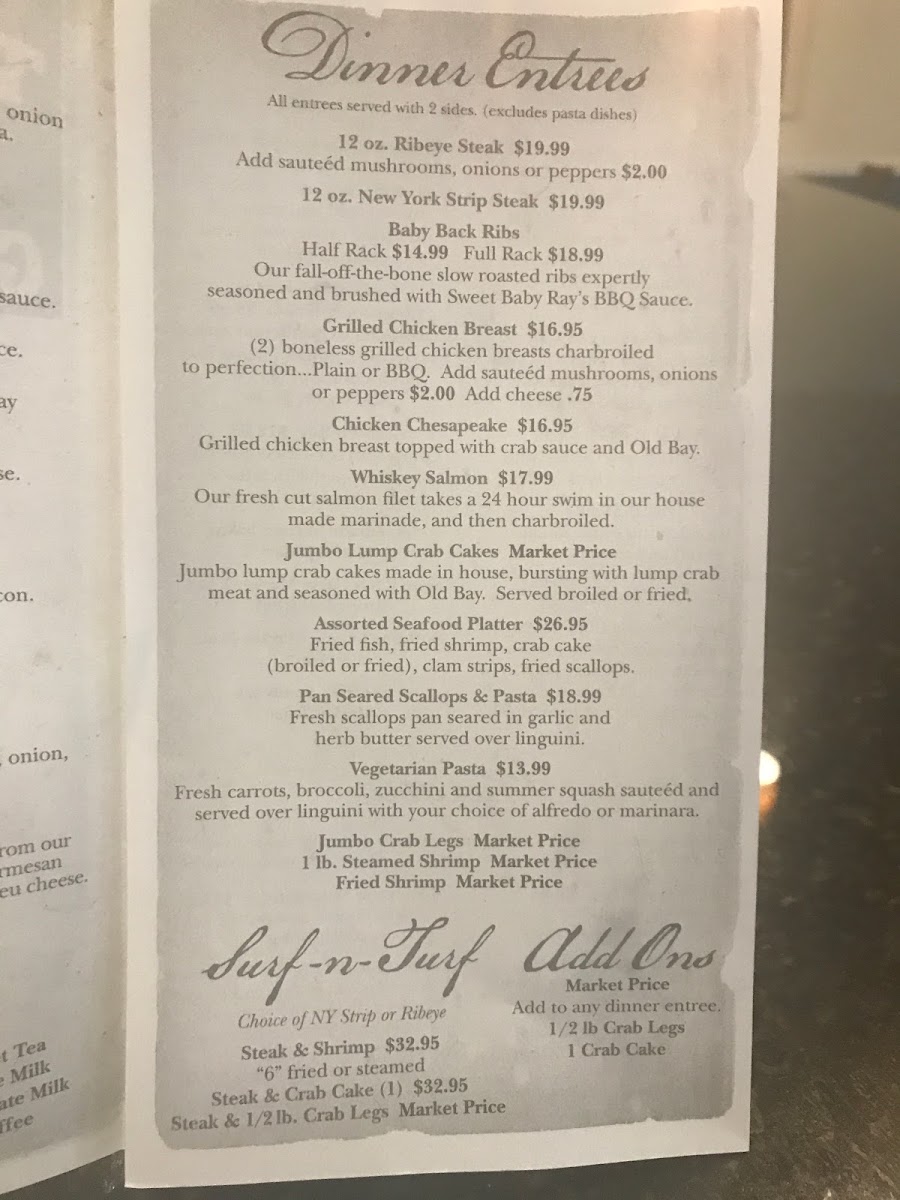 onion
a.
sauce.
ce.
ay
se.
con.
, onion,
rom our
rmesan
eu cheese.
t Tea
e Milk
ate Milk
ffee
Dinner Entrees
All entrees served with 2 sides. (excludes pasta dishes)
12 oz. Ribeye Steak $19.99
Add sauteéd mushrooms, onions or peppers $2.00
12 oz. New York Strip Steak $19.99
Baby Back Ribs
Half Rack $14.99 Full Rack $18.99
Our fall-off-the-bone slow roasted ribs expertly
seasoned and brushed with Sweet Baby Ray's BBQ Sauce.
Grilled Chicken Breast $16.95
(2) boneless grilled chicken breasts charbroiled
to perfection...Plain or BBQ. Add sauteéd mushrooms, onions
or peppers $2.00 Add cheese .75
Chicken Chesapeake $16.95
Grilled chicken breast topped with crab sauce and Old Bay.
Whiskey Salmon $17.99
Our fresh cut salmon filet takes a 24 hour swim in our house
made marinade, and then charbroiled.
Jumbo Lump Crab Cakes Market Price
Jumbo lump crab cakes made in house, bursting with lump crab
meat and seasoned with Old Bay. Served broiled or fried.
Assorted Seafood Platter $26.95
Fried fish, fried shrimp, crab cake
(broiled or fried), clam strips, fried scallops.
Pan Seared Scallops & Pasta $18.99
Fresh scallops pan seared in garlic and
herb butter served over linguini.
Vegetarian Pasta $13.99
Fresh carrots, broccoli, zucchini and summer squash sauteéd and
served over linguini with your choice of alfredo or marinara.
Jumbo Crab Legs Market Price
1 lb. Steamed Shrimp Market Price
Fried Shrimp Market Price
Surf-n-Turf
Choice of NY Strip or Ribeye
Steak & Shrimp $32.95
"6" fried or steamed
Steak & Crab Cake (1) $32.95
Steak & 1/2 lb. Crab Legs Market Price
Add Ons
Market Price
Add to any dinner entree.
1/2 lb Crab Legs
1 Crab Cake